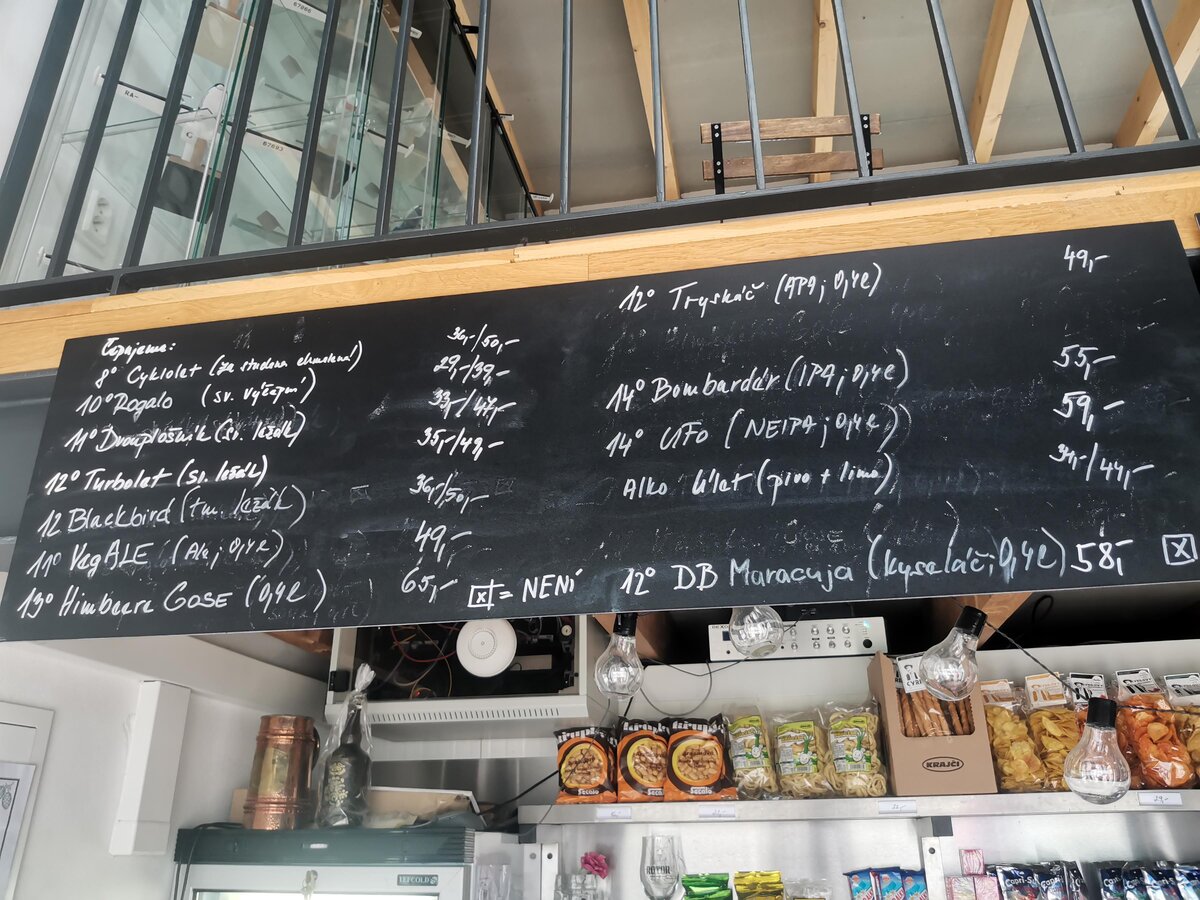 Čepujeme:
8° Cyklolet (za studena chmelená!) 36,-/50,-
10° Rogalo (sv. výčepní) 29,-/39,-
11° Dvouplošník (sv. ležák) 33,-/47,-
12° Turbolet (sv. ležák) 35,-/49,-
12 Blackbird (tm. ležák) 36,-/50,-
11° VagALE (Ale; 0,4l) 49,-
13° Himbeere GOSE (0,4l) 65,-
x = NENÍ
12° Tryskáč (APA; 0,4l) 49,-
14° Bombardér (IPA; 0,4l) 55,-
14° UFO (NEIPA; 0,4l) 59,-
Alko úlet (pivo + limo) 34,-/44,-
12° DB Maracuja (kyseláč; 0,4l) 58,- x
67866
RA-
67693
křupky
Secalo
KRAJČÍ
TEFCOLD
ROTOR
Capri-Sun
29,-